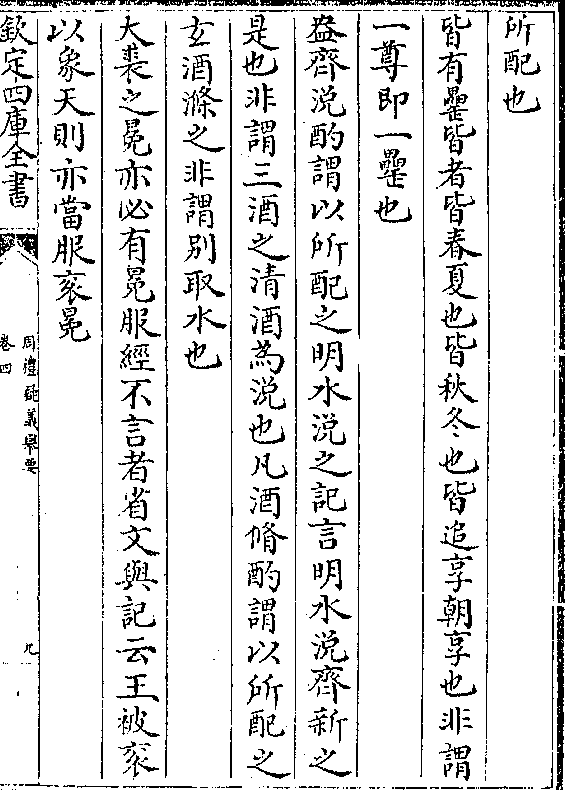 所配也
皆有罍皆者皆春夏也皆秋冬也皆追享朝享也非謂
一尊即一罍也
盎齊涚酌謂以所配之明水涚之記言明水涚齊新之
是也非謂三酒之清酒為涚也凡酒脩酌謂以所配之
玄酒滌之非謂別取水也
大裘之冕亦必有冕服經不言者省文與記云王被衮
以象天則亦當服衮冕
欽定四庫全書
周禮疑義舉要
卷四
九